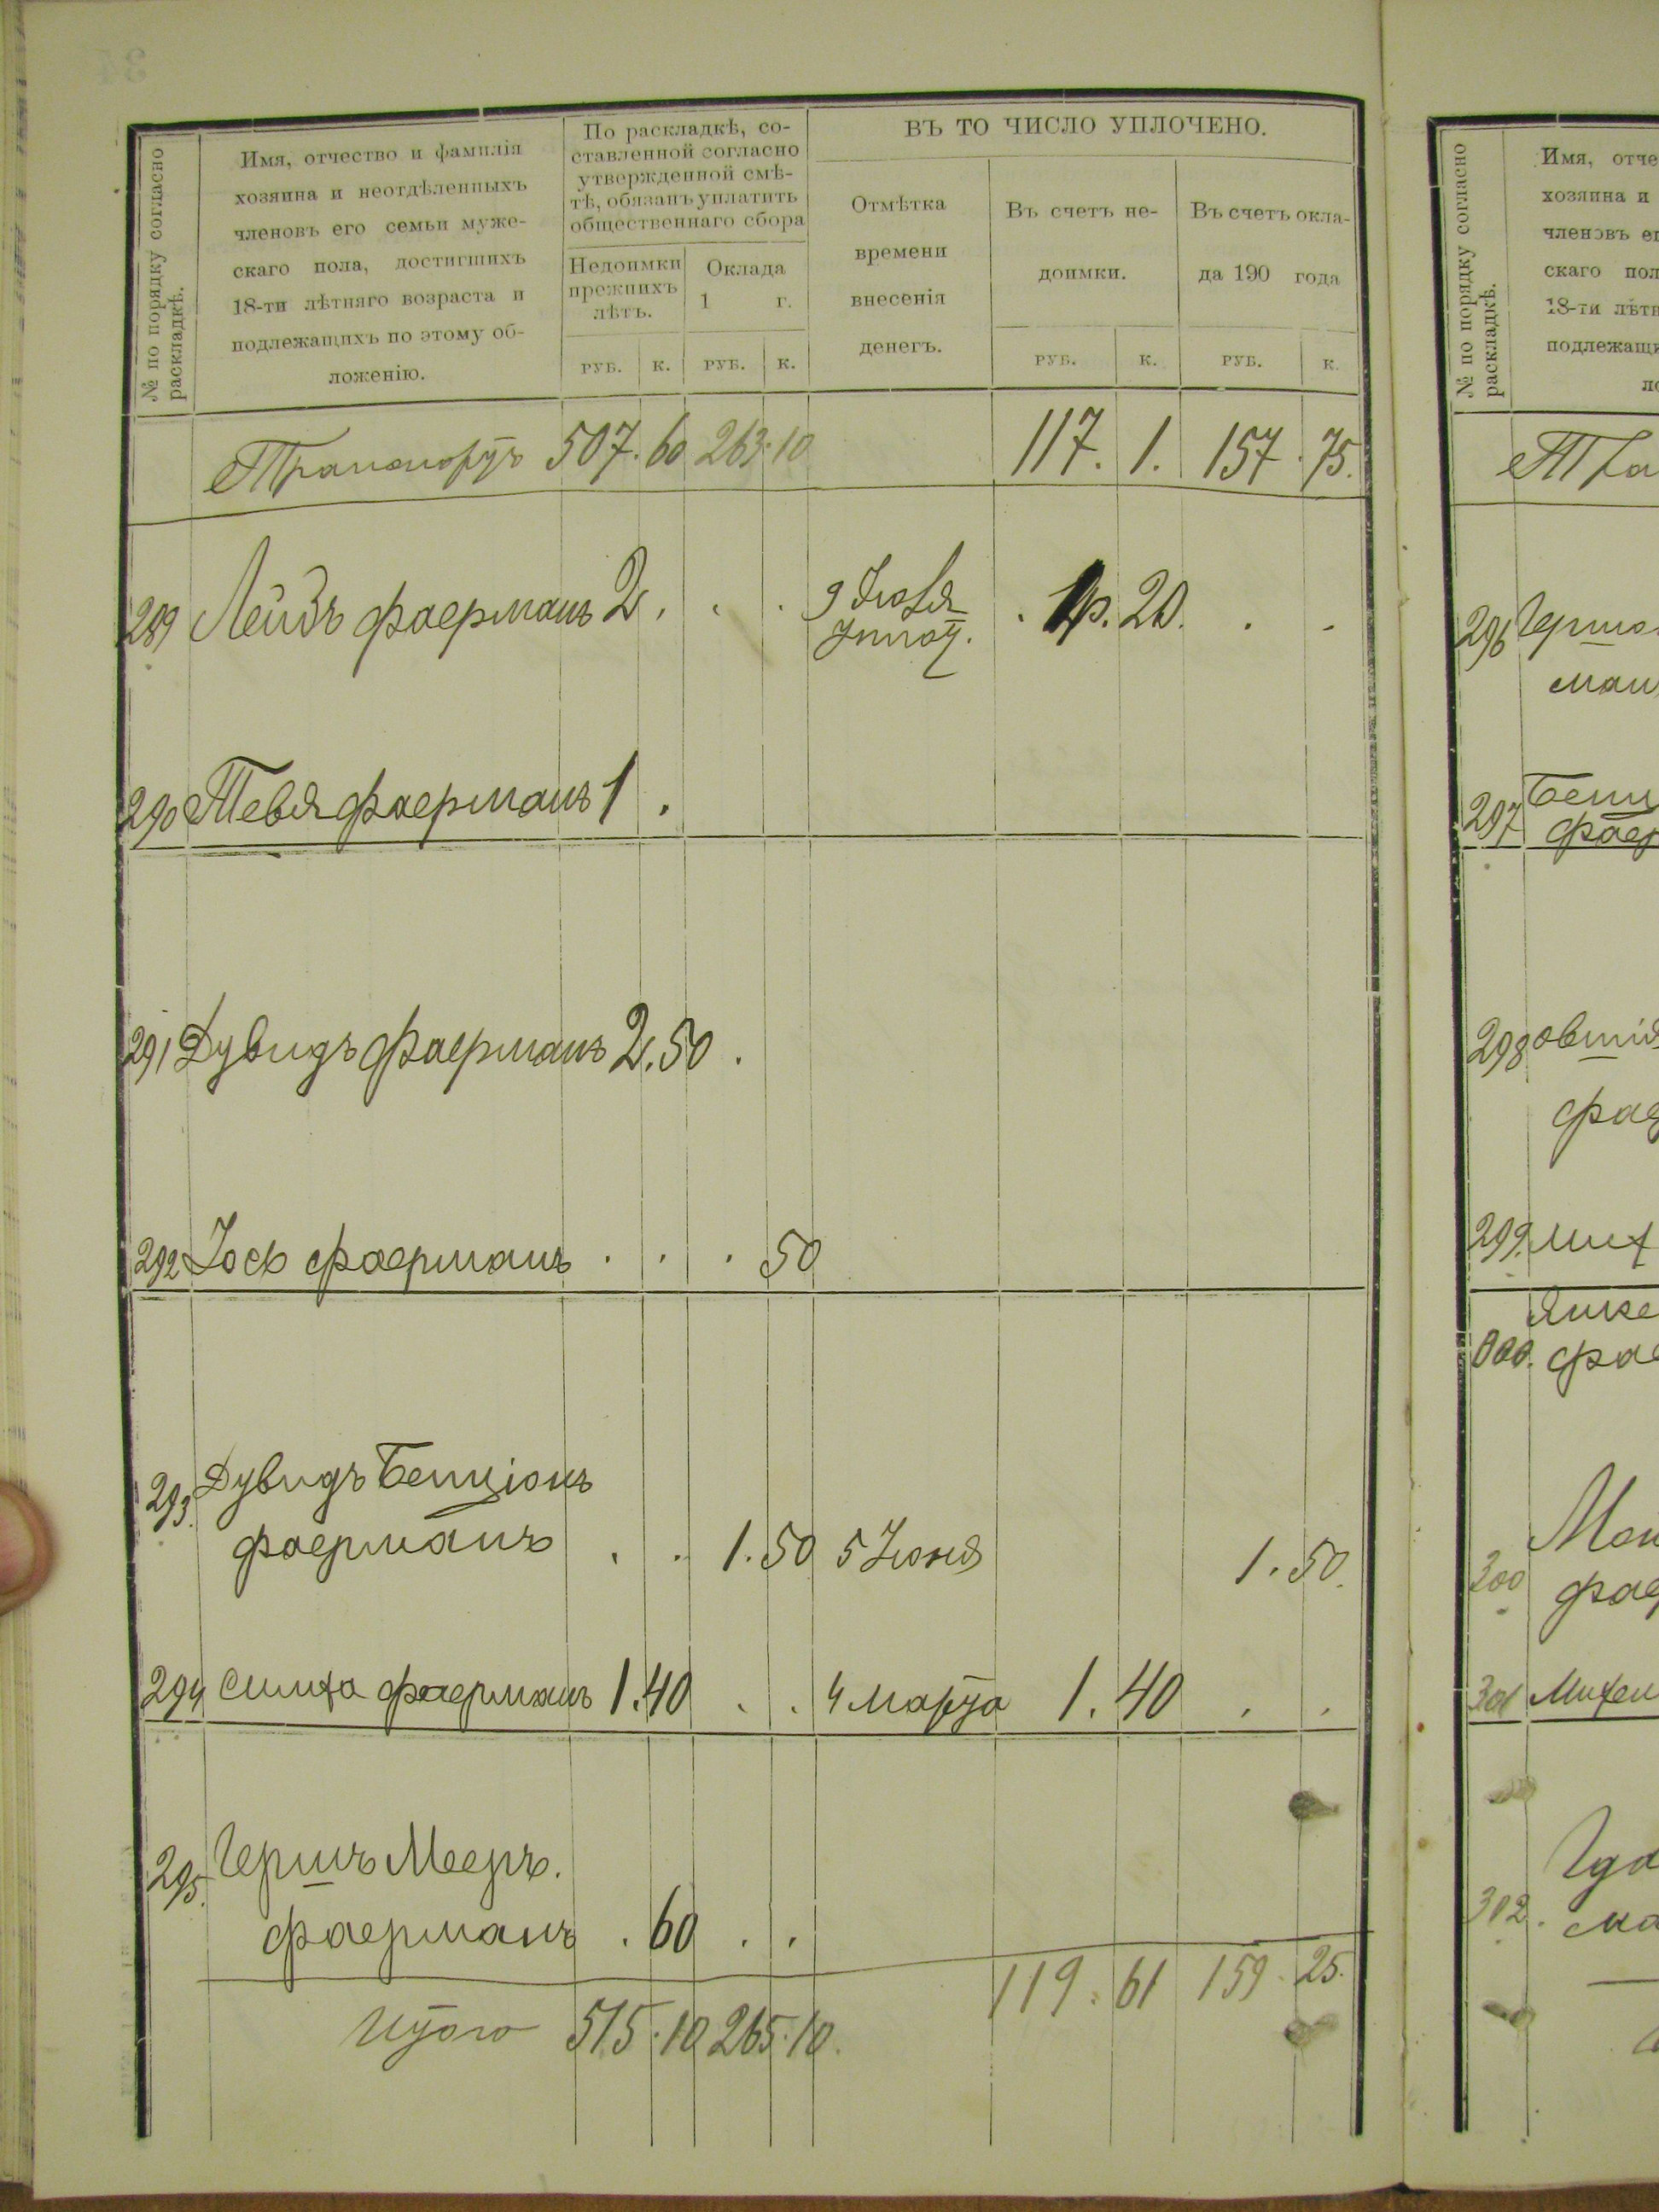 № по порядку согласно раскладкѣ.
Имя, отчество и фамилія
хозяина и неотдѣленныхъ
членовъ его семьи муже-
скаго пола, достигшихъ
18-ти лѣтняго возраста и
подлежащихъ по этому об-
ложенію.
По раскладкѣ, со-
ставленной согласно
утвержденной смѣ-
тѣ, обязанъ уплатить
общественнаго сбора
Недоимки
прежнихъ
лѣтъ.
Оклада
1 г.
РУБ. К. РУБ. К.
ВЪ ТО ЧИСЛО УПЛОЧЕНО.
Отмѣтка
времени
внесенія
денегъ.
Въ счетъ не-
доимки.
Въ счетъ окла-
да 190 года
РУБ. К. РУБ. К.
Транспортъ 507. 60 263. 10 117. 1. 157. 75.
289 Лейбъ Фаерманъ 2. . . 9 1р. 20. . .
290 Тевя Фаерманъ 1 .
291 Дувидъ Фаерманъ 2. 50 .
292 Іосъ Фаерманъ . . . 50
293. Дувидъ Бенціонъ
Фаерманъ . . 1. 50 5 Іюня 1. 50.
294 Симха Фаерманъ 1. 40 . . 4 Марта 1. 40 . .
295. Гершъ Мееръ.
Фаерманъ . 60 . .
119. 61 159. 25.
Итого 515. 10 265. 10.
№ по порядку согласно раскладкѣ.
Имя, отче
хозяина и
членовъ ег
скаго пол
18-ти лѣтн
подлежащи
ло
Тра
296 Герш
ман
297 Бенц
Фаер
298 Овшія
Фае
299. Мих
Фае
300
Фае
301 Михел
302.
ма